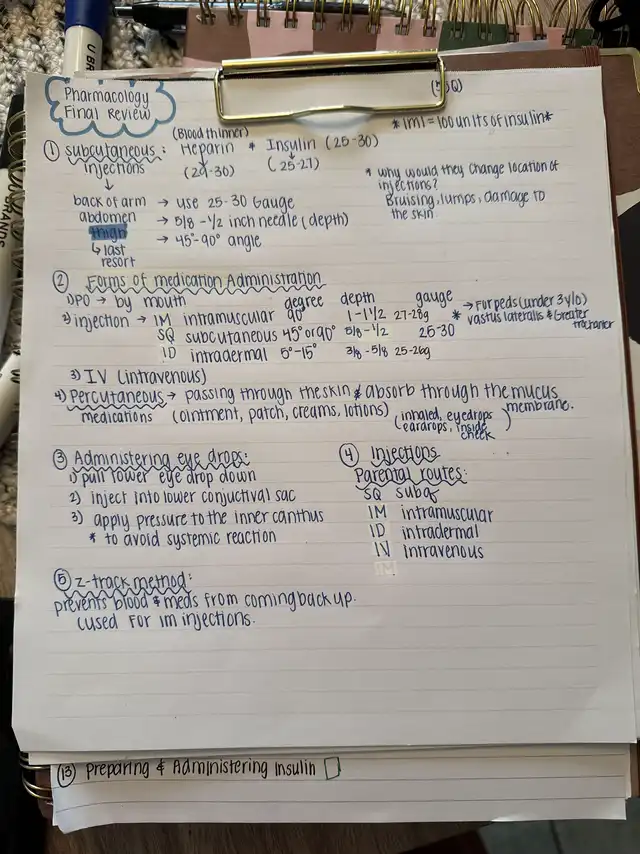 Pharmacology
Final Review
(SQ)
* 1ml = 100 units of insulin *
(Blood thinner)
① subcutaneous: Heparin * Insulin (25-30)
injections (29-30) (25-27)
* why would they change location of
injections?
Bruising, lumps, damage to
the skin
back of arm → use 25-30 Gauge
abdomen → 5/8 - 1/2 inch needle (depth)
thigh → 45°-90° angle
↳ last
resort
② Forms of medication Administration
1) PO → by mouth degree depth gauge
2) injection → IM intramuscular 90° 1 - 1 1/2 27-28g
SQ subcutaneous 45° or 90° 5/8 - 1/2 25-30
ID intradermal 5°-15° 3/8 - 5/8 25-26g
→ For peds (under 3 y/o)
* vastus lateralis & Greater
trochanter
3) IV (intravenous)
4) Percutaneous → passing through the skin & absorb through the mucus
membrane.
medications (ointment, patch, creams, lotions) (inhaled, eyedrops
eardrops, inside
check)
③ Administering eye drops:
1) pull lower eye drop down
2) inject into lower conjuctival sac
3) apply pressure to the inner canthus
* to avoid systemic reaction
④ Injections
Parental routes:
SQ subq
IM intramuscular
ID intradermal
IV Intravenous
IM
⑤ z-track method:
prevents blood & meds from coming back up.
(used for im injections.
⑬ Preparing & Administering Insulin